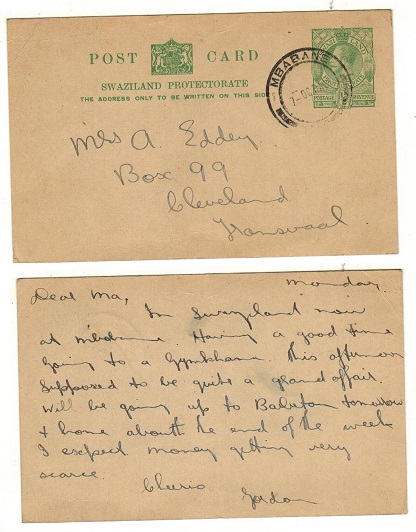 POST CARD
SWAZILAND PROTECTORATE
THE ADDRESS ONLY TO BE WRITTEN ON THIS SIDE
MBABANE
Mrs A. Eddey
Box 99
Cleveland
Transvaal
Monday.
Dear Ma,
In Swaziland now
at Mbabane. Having a good time
going to a Gymkhana this afternoon
supposed to be quite a grand affair.
Will be going up to tomorrow
+ home about the end of the week
I expect money getting very
scarce.
Cheerio
Gordon